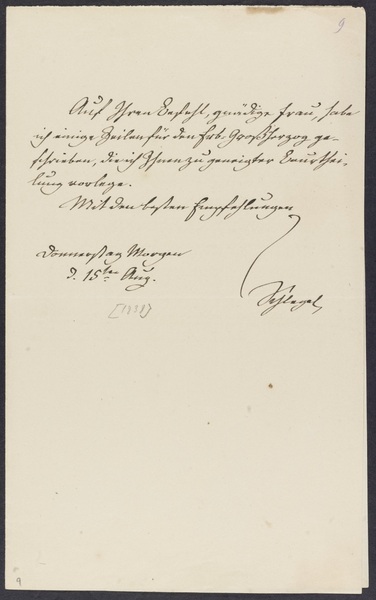 9
Auf Ihren Befehl, gnädige Frau, habe
ich einige Zeilen für den Erb-Großherzog ge-
schrieben, die ich Ihnen zu geneigter Beurthei-
lung vorlege.
Mit den besten Empfehlungen
Donnerstag Morgen
d. 15ten Aug.
Schlegel
9